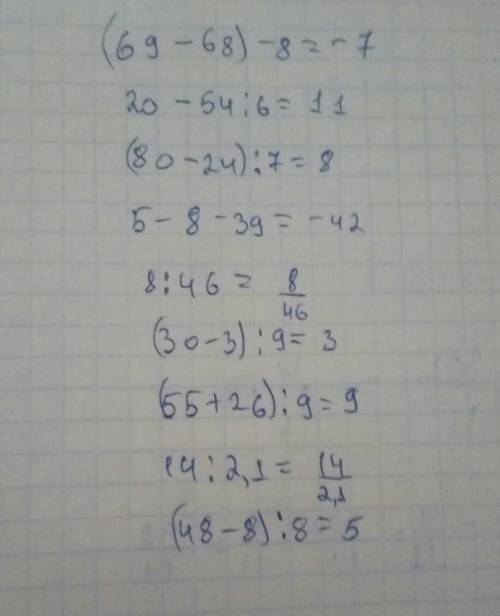 (69 - 68) - 8 = - 7
20 - 54 : 6 = 11
(80 - 24) : 7 = 8
5 - 8 - 39 = - 42
8 : 46 = 8/46
(30 - 3) : 9 = 3
(55 + 26) : 9 = 9
14 : 2,1 = 14/2,1
(48 - 8) : 8 = 5